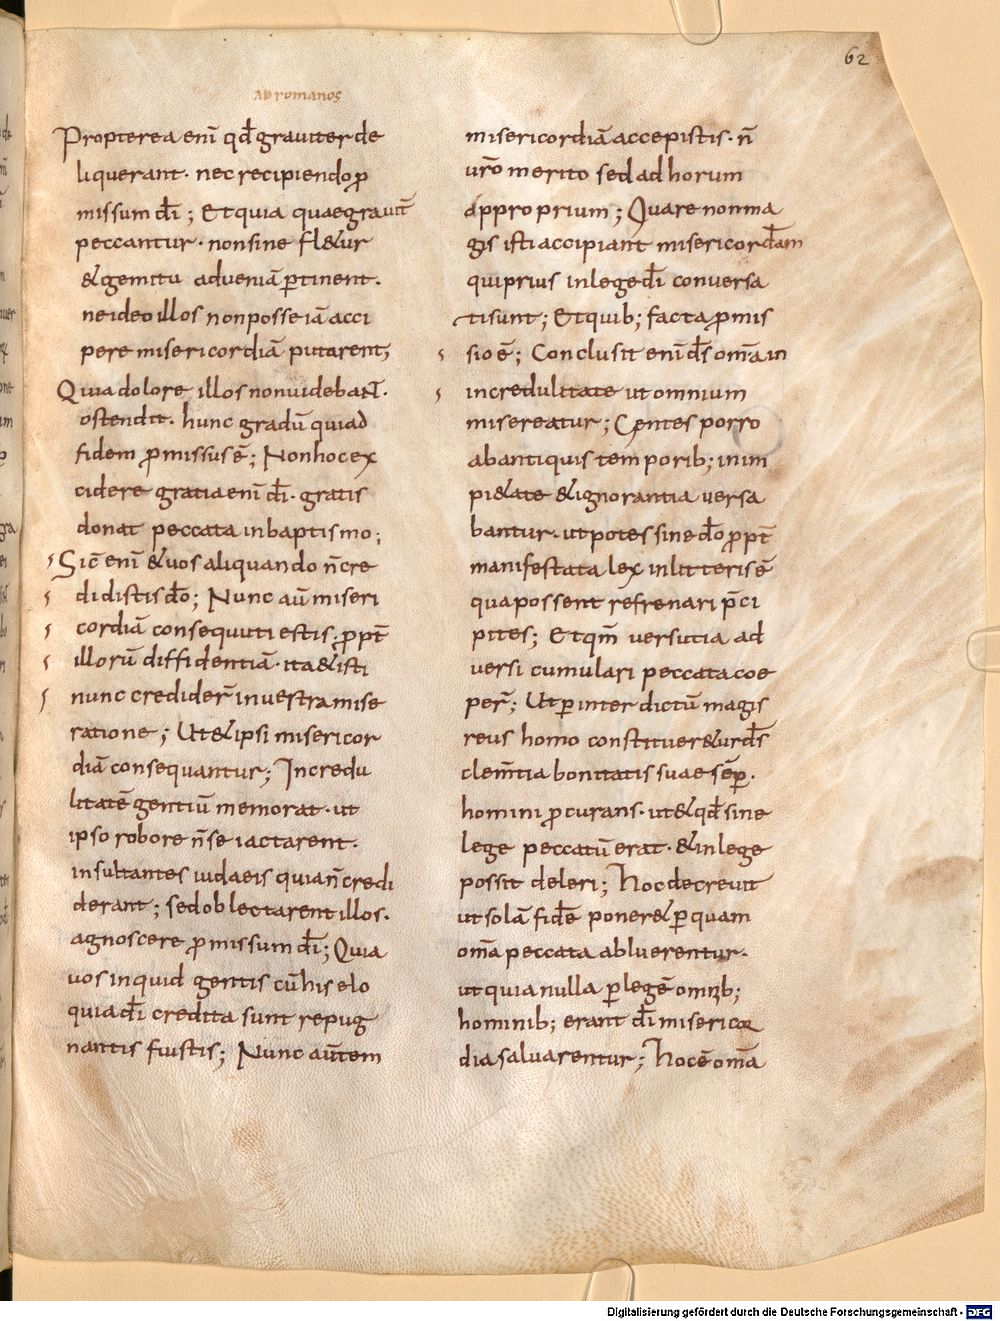 62
AD romanos
Propterea enī qđ grauiter de
liquerant· nec recipiendo ꝓ
missum dī; Et quia quae grauit̄
peccantur· non sine fl&ur
& gemitu ad ueniā ꝑtinent·
ne ideo illos non posse iā acci
pere misericordiā putarent;
Quia dolore illos non uidebat·
ostendit· hunc gradū quia ad
fidem ꝓmissus ē; Non hoc ex
cidere gratia enī dī· gratis
donat peccata in baptismo;
Sic̄ enī & uos aliquando n̄ cre
didistis dō; Nunc aū miseri
cordiā consequuti estis· ꝓpt̄
illorū diffidentiā· ita & isti
nunc credider̄ in uestra mise
ratione; Ut & ipsi misericor
diā consequantur; Incredu
litatē gentiū memorat· ut
ipso robore n̄ se iactarent·
insultantes iudaeis quia n̄ credi
derant; sed oblectarent illos·
agnoscere ꝓmissum dī; Quia
uos inquid gentis cū his elo
quia dī credita sunt repug
nantis fuistis; Nunc aūtem
misericordiā accepistis· n̄
ur̄o merito sed ad horum
approprium; Quare non ma
gis isti accipiant misericordam
qui prius in lege dī conuersa
ti sunt; Et quib; facta ꝓmis
sio ē; Conclusit enī ds̄ om̄a in
incredulitate ut omnium
misereatur; Gentes porro
ab antiquis temporib; in im
pi&ate & ignorantia uersa
bantur· utpote sine dō ꝓpt̄
manifestata lex in litteris ē
qua possent refrenari p̄ci
pites; Et qm̄ uersutia ad
uersi cumulari peccata coe
per̄; Ut ꝑ inter dictū magis
reus homo constituer&ur ds̄
clem̄tia bonitatis suae sēꝑ·
homini ꝓcurans· ut & qđ sine
lege peccatū erat· & in lege
possit deleri; Hoc decreuit
ut solā fidē poner& ꝑ quam
om̄a peccata abluerentur·
ut quia nulla ꝑ legē omnib;
hominib; erant dī misericor
dia saluarentur; Hoc ē om̄a
Digitalisierung gefördert durch die Deutsche Forschungsgemeinschaft - DFG